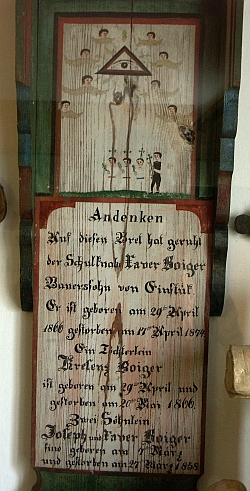 Andenken
Auf diesen Bret hat geruht
der Schulknabe Xaver Boiger
Bauerssohn von Einstük.
Er ist geboren am 29ten April
1866 gestorben am 17ten April 1874
Ein Töchterlein
Krelenz Boiger
ist geboren am 29ten April und
gestorben am 20ten Mai 1866.
Zwei Söhnlein
Joseph und Xaver Boiger
sind geboren am 7ten März
und gestorben am 27ten März 1858